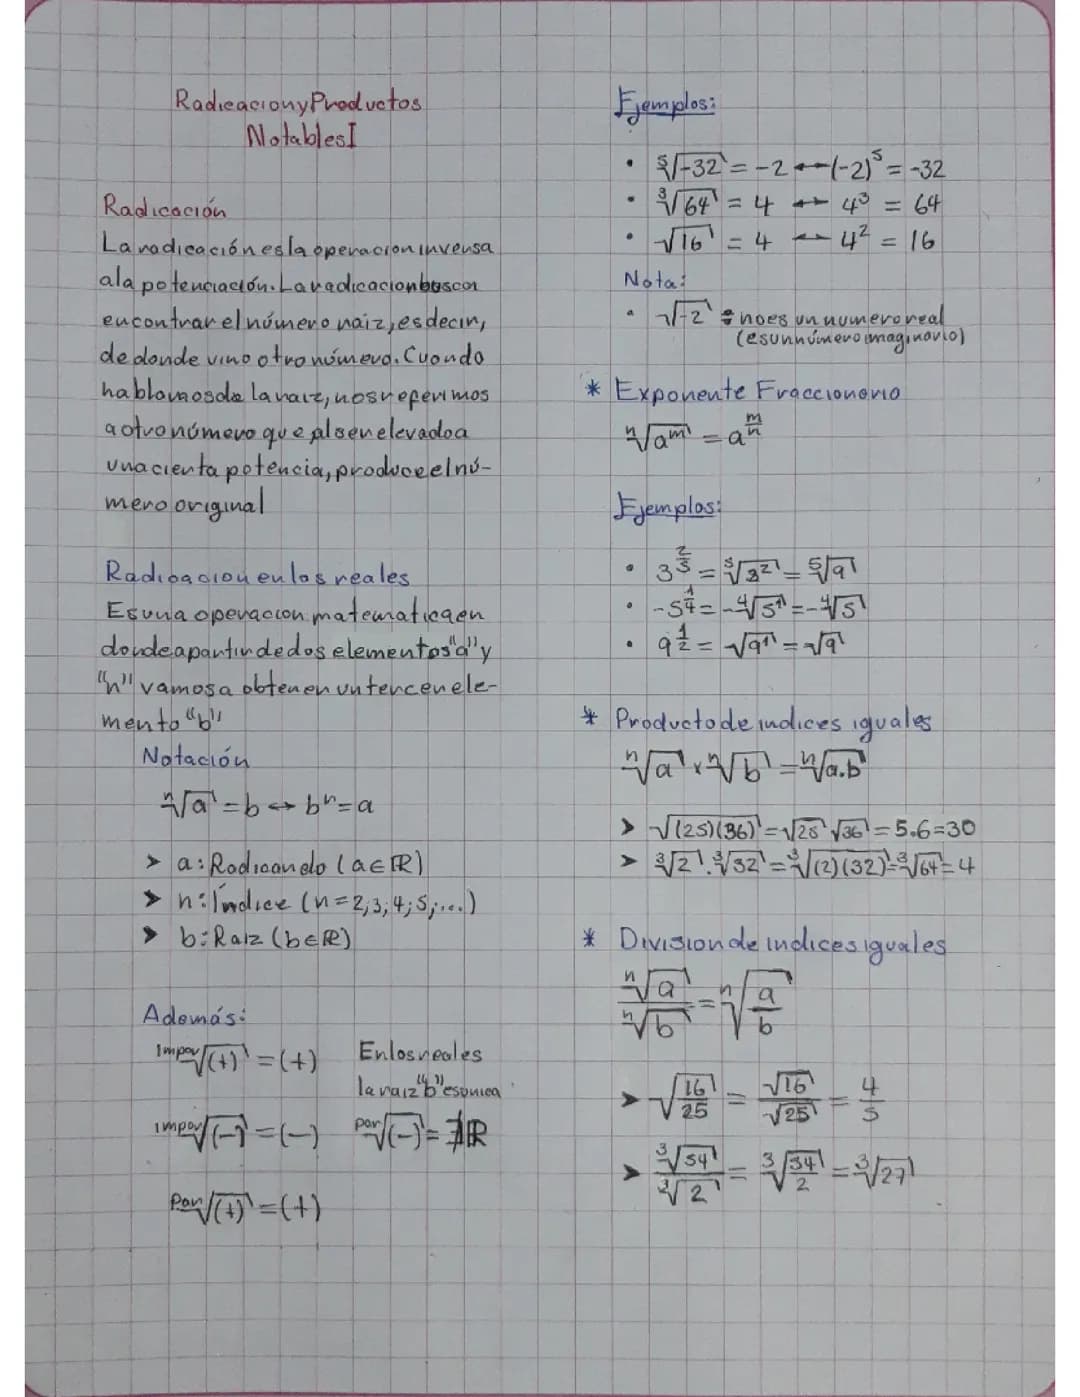 Radicacion y Productos
Notables I
Radicación
La radicación es la operacion inversa
a la potenciación. La radicacion buscar
encontrar el número raiz, es decir,
de donde vino otro número. Cuando
hablamos de la raiz, nos referimos
a otro número que al ser elevado a
una cierta potencia, produce el nú-
mero original
Radicacion en los reales
Es una operacion matematica en
donde a partir de dos elementos "a" y
"n" vamos a obtener un tercer ele-
mento "b"
Notación
ⁿ√a = b ↔ bⁿ = a
> a: Radicando (a ∈ ℝ)
> n: Índice (n = 2; 3; 4; 5; ...)
> b: Raiz (b ∈ ℝ)
Además:
Impar√(+) = (+) En los reales
la raiz "b" es unica
impar√(-) = (-) par√(-) = ∄ℝ
Par√(+) = (+)
Ejemplos:
• ⁵√-32 = -2 ↔ (-2)⁵ = -32
• ³√64 = 4 ↔ 4³ = 64
• √16 = 4 ↔ 4² = 16
Nota:
• √-2 = no es un numero real
(es un número imaginario)
* Exponente Fraccionario
ⁿ√aᵐ = a^(m/n)
Ejemplos:
• 3^(2/5) = ⁵√3² = ⁵√9
• -5^(1/4) = -⁴√5¹ = -⁴√5
• 9^(1/2) = √9¹ = √9
* Producto de indices iguales
ⁿ√a × ⁿ√b = ⁿ√a.b
> √(25)(36) = √25 √36 = 5.6 = 30
> ³√2 . ³√32 = ³√(2)(32) = ³√64 = 4
* Division de indices iguales
ⁿ√a / ⁿ√b = ⁿ√(a/b)
> √(16/25) = √16/√25 = 4/5
> ³√54 / ³√2 = ³√(54/2) = ³√27